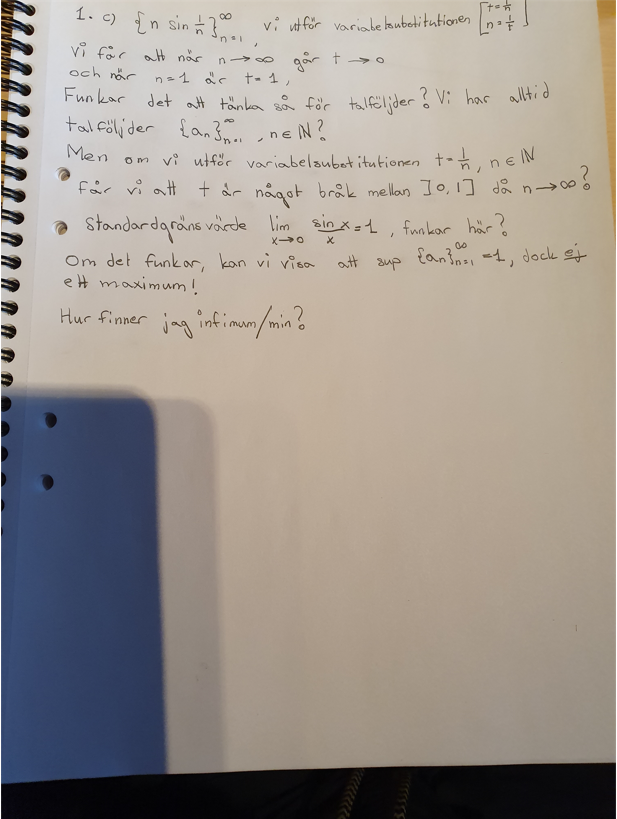 1. c) {n sin 1/n}_{n=1}^∞, vi utför variabelsubstitutionen [t=1/n
n=1/t]
Vi får att när n→∞ går t→0
och när n=1 är t=1,
Funkar det att tänka så för talföljder? Vi har alltid
talföljder {an}_{n=1}^∞, n∈ℕ?
Men om vi utför variabelsubstitutionen t=1/n, n∈ℕ
får vi att t är något bråk mellan ]0,1] då n→∞?
• Standardgränsvärde lim_{x→0} sin x/x = 1, funkar här?
Om det funkar, kan vi visa att sup {an}_{n=1}^∞ = 1, dock ej
ett maximum!
Hur finner jag infimum/min?